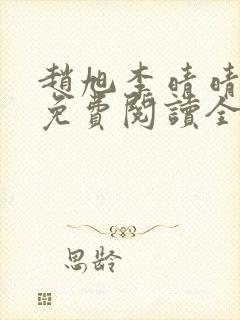 趙旭李晴晴
免費閱讀全
思齡